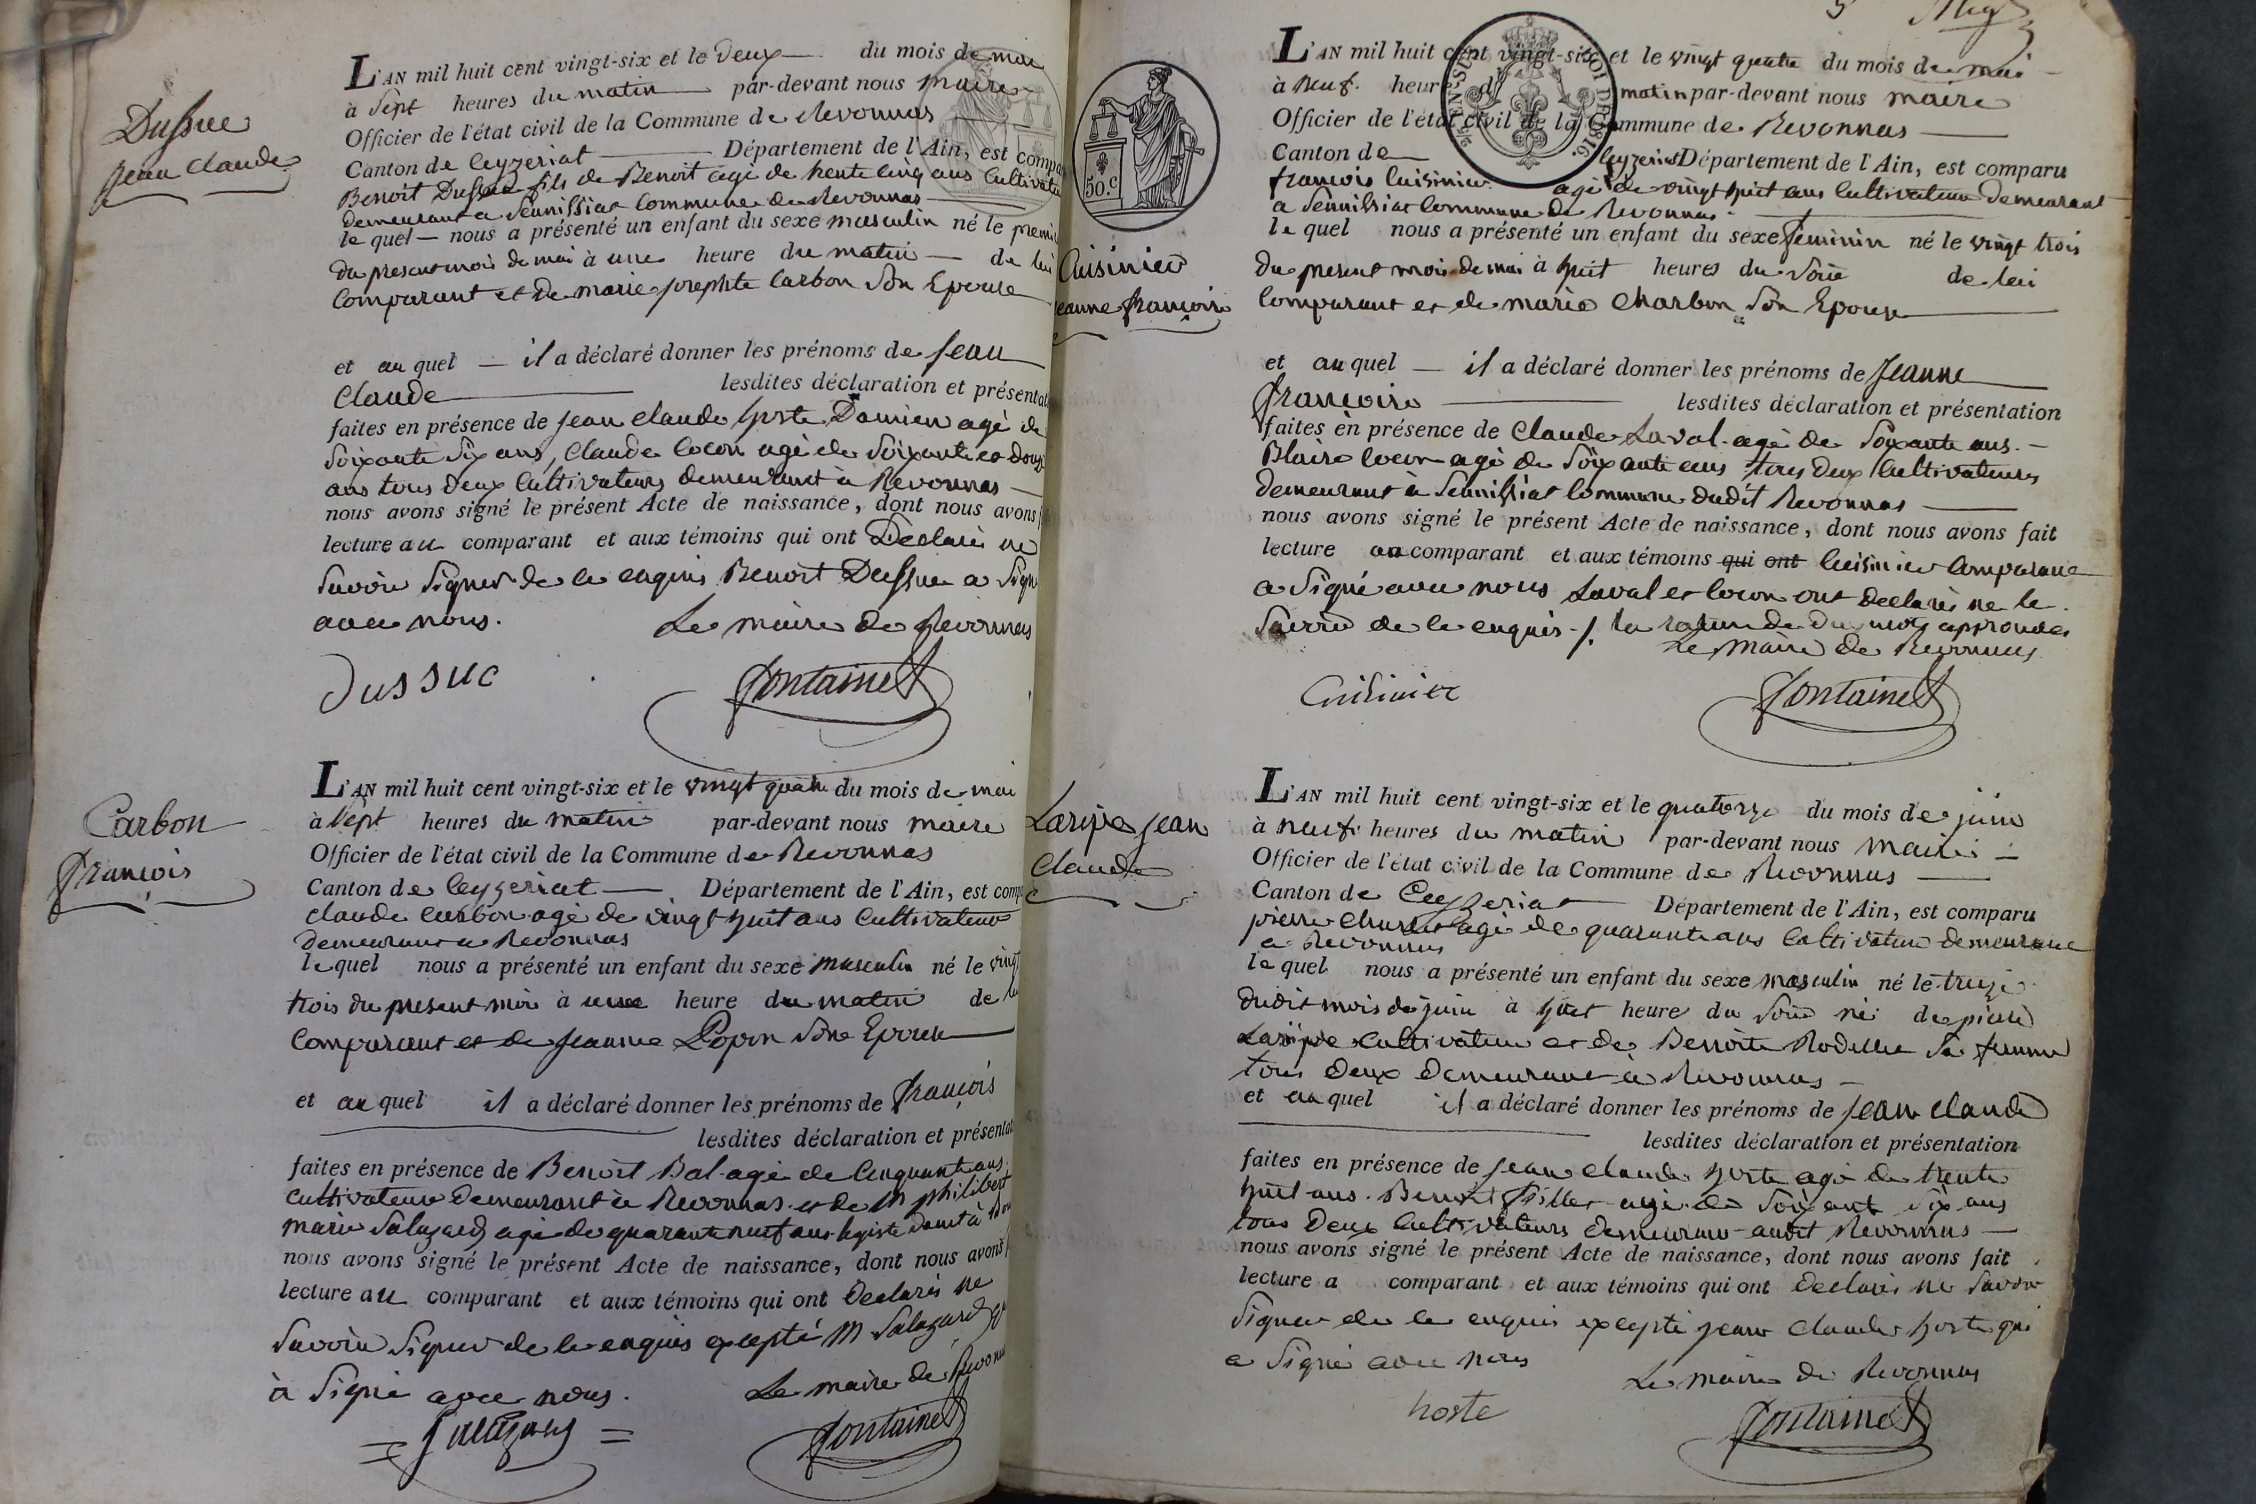 Dussuc
Jean Claude
L'AN mil huit cent vingt-six et le deux du mois de mai
à sept heures du matin par-devant nous maire
Officier de l'état civil de la Commune de Revonnas
Canton de Ceyzeriat Département de l'Ain, est compa
Benoit Dussuc fils de Benoit agé de trente cinq ans Cultivateur
demeurant a Senissiat Commune de Revonnas
le quel nous a présenté un enfant du sexe masculin né le premier
du present mois de mai à une heure du matin de lui
Comparant et de marie josephte Carbon son Epouse
et au quel il a déclaré donner les prénoms de Jean
Claude lesdites déclaration et présentat
faites en présence de Jean Claude hoste Damien agé de
soixante six ans, Claude Cocon agé de soixante et douze
ans tous deux Cultivateurs demeurant à Revonnas
nous avons signé le présent Acte de naissance, dont nous avons
lecture au comparant et aux témoins qui ont Declaré ne
savoir signer de ce enquis Benoit Dussuc a signé
avec nous. Le maire de Revonnas
Dussuc Fontaine
Carbon
François
L'AN mil huit cent vingt-six et le vingt quatre du mois de mai
à sept heures du matin par-devant nous maire
Officier de l'état civil de la Commune de Revonnas
Canton de Ceyzeriat Département de l'Ain, est comp
Claude Carbon agé de vingt huit ans Cultivateur
demeurant a Revonnas
le quel nous a présenté un enfant du sexe masculin né le vingt
trois du present mois à une heure du matin de lui
Comparant et de Jeanne Popon son Epouse
et au quel il a déclaré donner les prénoms de François
lesdites déclaration et présentat
faites en présence de Benoit Bal agé de Cinquante ans
Cultivateur demeurant à Revonnas et de M philibert
marie Salazard agé de quarante neuf ans
nous avons signé le présent Acte de naissance, dont nous avons
lecture au comparant et aux témoins qui ont declaré ne
savoir signer de ce enquis excepté M Salazard qui
à signé avec nous. Le maire de Revonnas
Salazard Fontaine
50.c
L'AN mil huit cent vingt-six et le vingt quatre du mois de mai
à neuf heures du matin par-devant nous maire
Officier de l'état civil de la Commune de Revonnas
Canton de Ceyzeriat Département de l'Ain, est comparu
françois Cuisinier agé de vingt huit ans Cultivateur demeurant
a Senissiat Commune de Revonnas
le quel nous a présenté un enfant du sexe féminin né le vingt trois
du present mois de mai à huit heures du soir de lui
Comparant et de marie Charbon son Epouse
Cuisinier
Jeanne françoise
et au quel il a déclaré donner les prénoms de Jeanne
françoise lesdites déclaration et présentation
faites en présence de Claude Laval agé de soixante ans.
Blaise Cocon agé de soixante ans tous deux Cultivateurs
demeurant à Senissiat Commune dudit Revonnas
nous avons signé le présent Acte de naissance, dont nous avons fait
lecture au comparant et aux témoins qui ont Cuisinier Comparant
a signé avec nous Laval et Cocon ont declaré ne le
savoir de ce enquis ./. la rature de deux mots approuvée
Le Maire de Revonnas
Cuisinier Fontaine
Laripe Jean
Claude
L'AN mil huit cent vingt-six et le quatorze du mois de juin
à neuf heures du matin par-devant nous maire
Officier de l'état civil de la Commune de Revonnas
Canton de Ceyzeriat Département de l'Ain, est comparu
pierre agé de quarante ans Cultivateur demeurant
a Revonnas
le quel nous a présenté un enfant du sexe masculin né le treize
dudit mois de juin à huit heure du soir né de pierre
Laripe Cultivateur et de Benoite Rodellue sa femme
tous deux demeurant à Revonnas
et au quel il a déclaré donner les prénoms de Jean Claude
lesdites déclaration et présentation
faites en présence de Jean Claude hoste agé de trente
huit ans. Benoit agé de soixante six ans
tous deux Cultivateurs demeurant audit Revonnas
nous avons signé le présent Acte de naissance, dont nous avons fait
lecture a comparant et aux témoins qui ont declaré ne savoir
signer de ce enquis excepté jean Claude hoste qui
a signé avec nous Le maire de Revonnas
hoste Fontaine